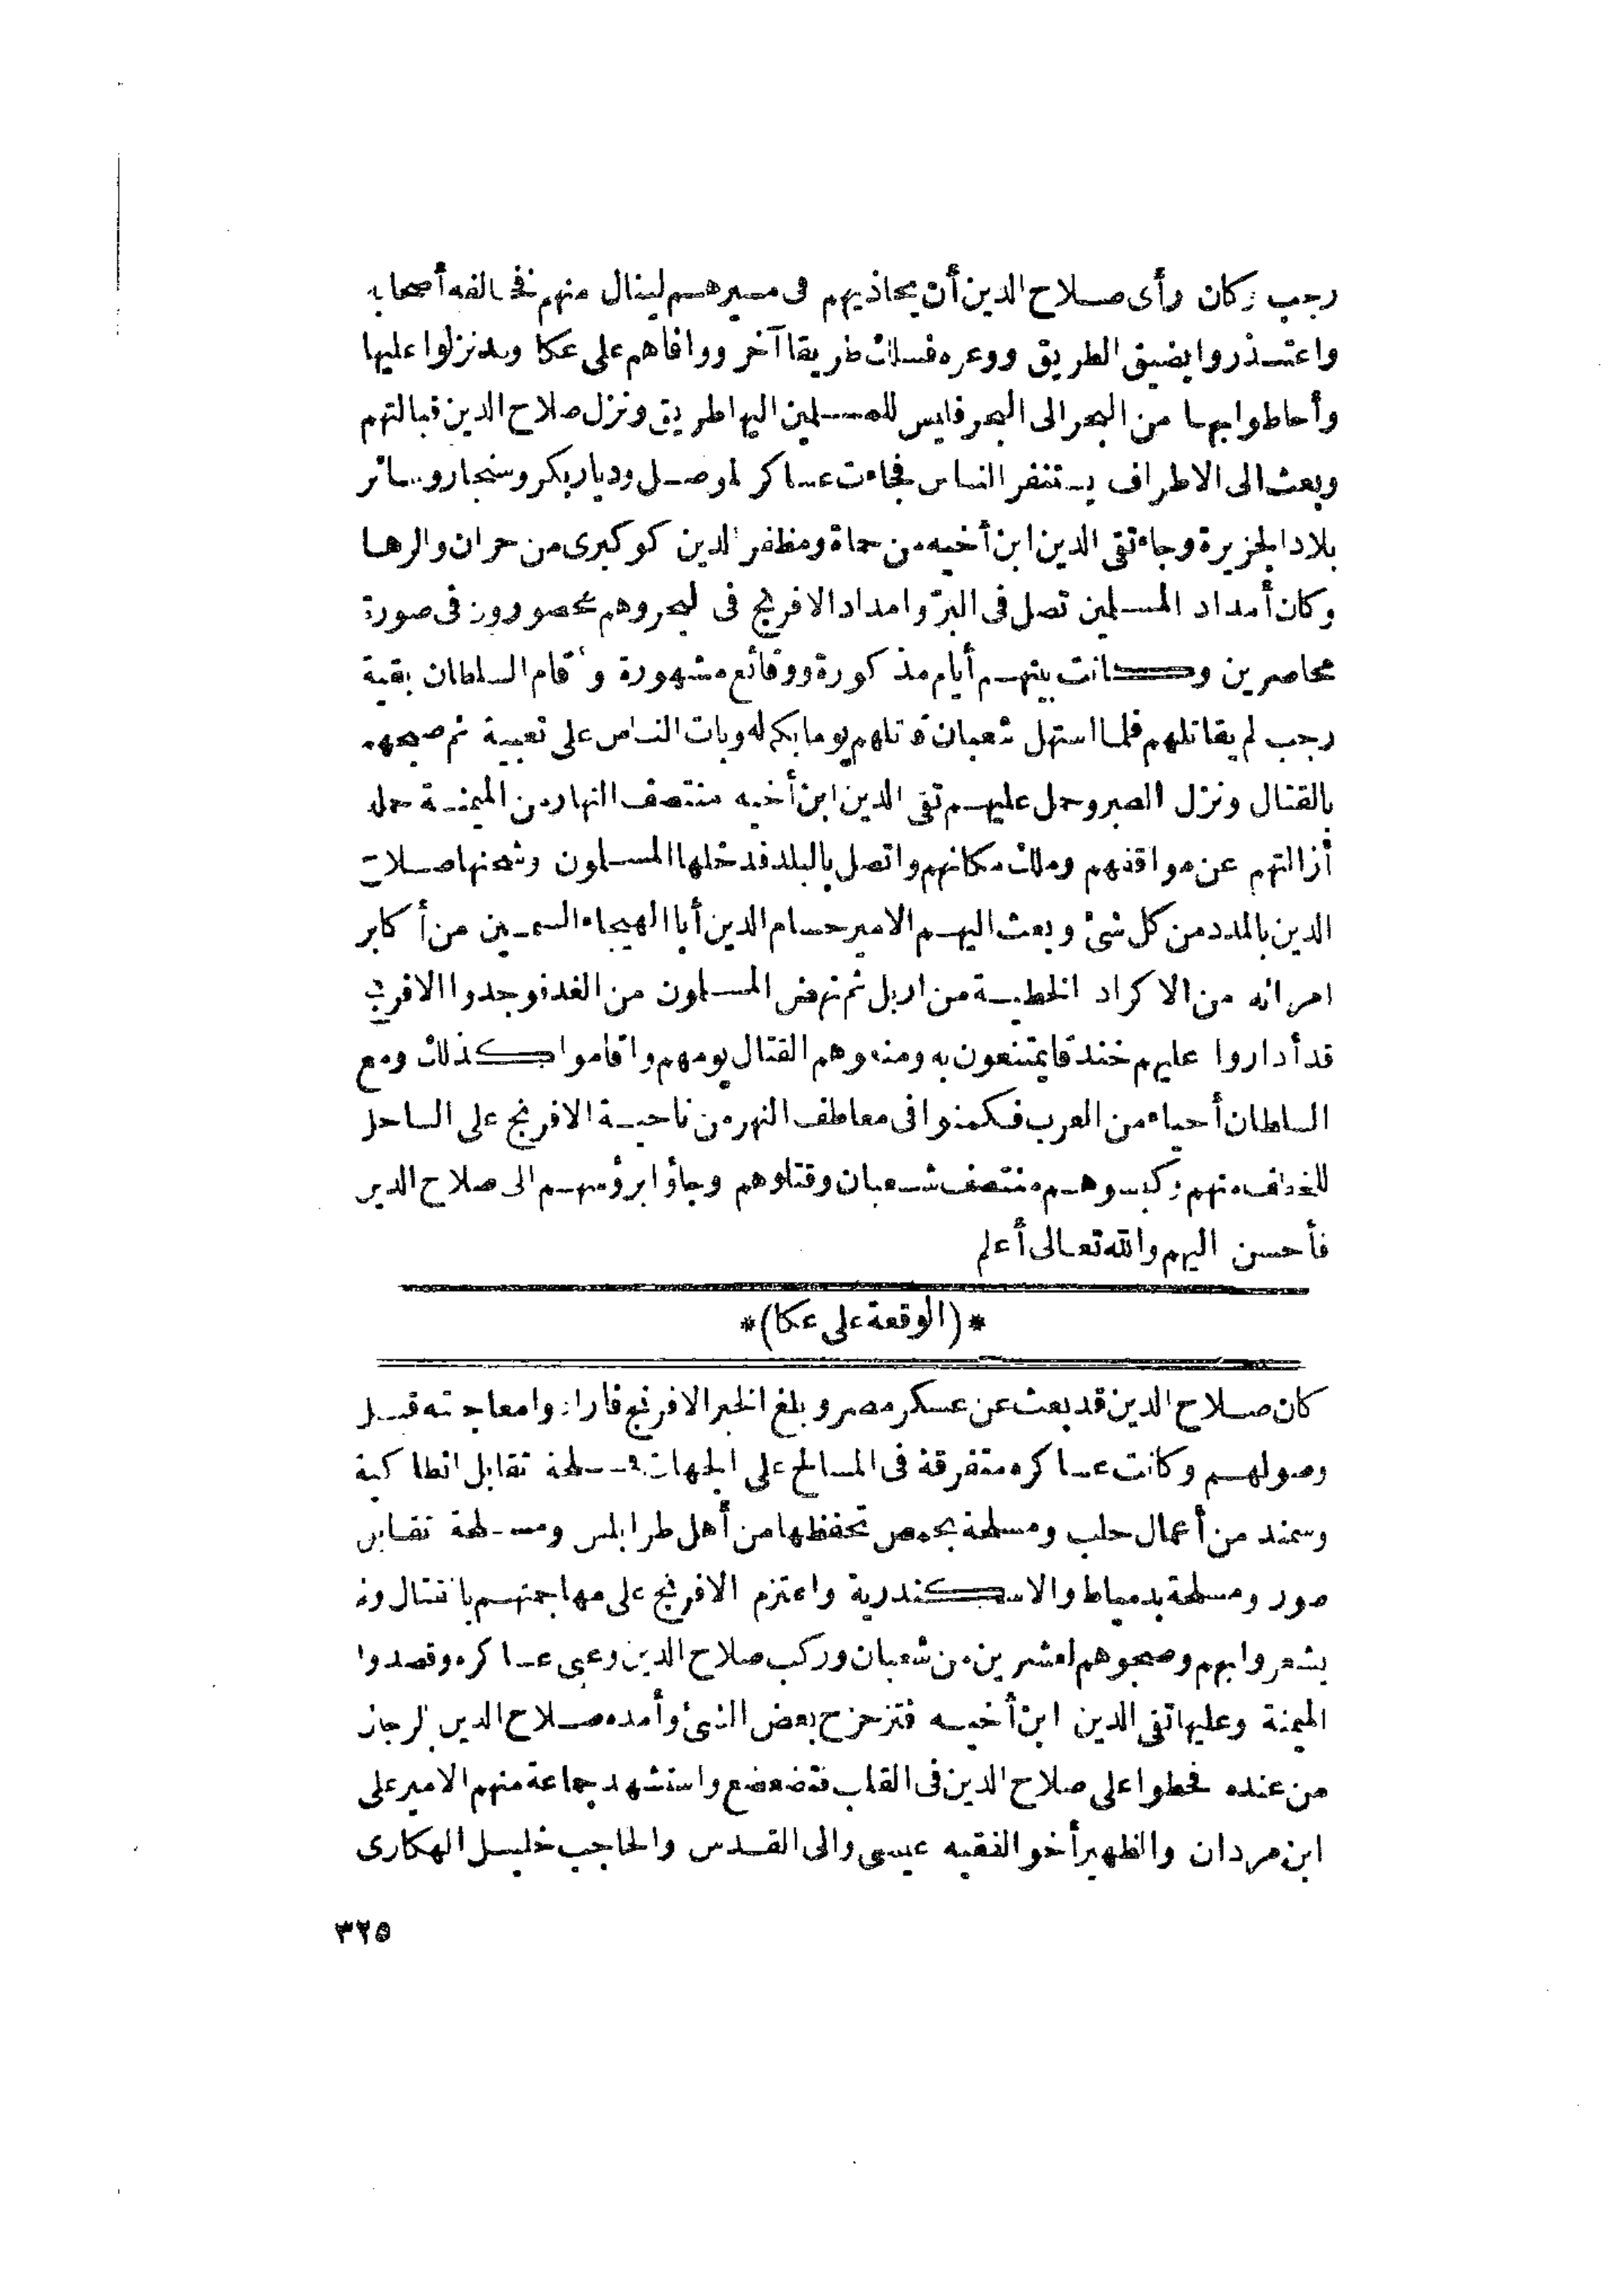 رجب وكان رأى صلاح الدين أن يحاذيهم فى مسيرهم لينال منهم فخالفه أصحابه
واعتذروا بضيق الطريق ووعره فسلك طريقا آخر ووافاهم على عكا وقد نزلوا عليها
وأحاطوا بها من البحر الى البحر فليس للمسلمين اليها طريق ونزل صلاح الدين قبالتهم
وبعث الى الاطراف يستنفر الناس فجاءت عساكر الموصل وديار بكر وسنجار وسائر
بلاد الجزيرة وجاء تقى الدين ابن أخيه من حماة ومظفر الدين كوكبرى من حران والرها
وكان أمداد المسلمين تصل فى البرّ وامداد الافرنج فى البحر وهم محصورون فى صورة
محاصرين وكانت بينهم أيام مذكورة ووقائع مشهورة وأقام السلطان بقية
رجب لم يقاتلهم فلما استهل شعبان قاتلهم يوما بكمله وبات الناس على تعبية ثم صبحهم
بالقتال ونزل الصبر وحمل عليهم تقى الدين ابن أخيه منتصف النهار من الميمنة حملة
أزالتهم عن مواقفهم وملك مكانهم واتصل بالبلد فدخلها المسلمون وشحنها صلاح
الدين بالمدد من كل شئ وبعث اليهم الامير حسام الدين أبا الهيجاء السمين من أكابر
امرائه من الاكراد الخطية من اربل ثم نهض المسلمون من الغد فوجدوا الافرنج
قد أداروا عليهم خندقا يمتنعون به ومنعوهم القتال يومهم واقاموا كذلك ومع
السلطان أحياء من العرب فكمنوا فى معاطف النهر من ناحية الافرنج على الساحل
للخطف منهم وكبسوهم منتصف شعبان وقتلوهم وجاؤا برؤسهم الى صلاح الدين
فأحسن اليهم والله تعالى أعلم
*(الوقعة على عكا)*
كان صلاح الدين قد بعث عن عسكر مصر وبلغ الخبر الافرنج فارادوا معاجلته قبل
وصولهم وكانت عساكره متفرقة فى المسالح على الجهات فمسلحة تقابل انطاكية
وسمند من أعمال حلب ومسلحة بحمص تحفظها من أهل طرابلس ومسلحة تقابل
صور ومسلحة بدمياط والاسكندرية واعتزم الافرنج على مهاجمتهم بالقتال ولم
يشعروا بهم وصبحوهم لعشرين من شعبان وركب صلاح الدين وعبى عساكره وقصدوا
الميمنة وعليها تقى الدين ابن أخيه فتزحزح بعض الشئ وأمده صلاح الدين بالرجال
من عنده فحطوا على صلاح الدين فى القلب فتضعضع واستشهد جماعة منهم الامير على
ابن مردان والظهير أخو الفقيه عيسى والى القدس والحاجب خليل الهكارى
٣٢٥